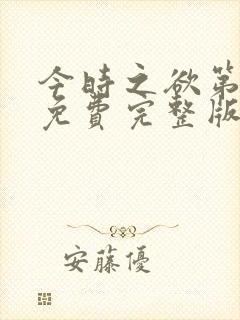 今時之欲第
免費完整版
安藤優